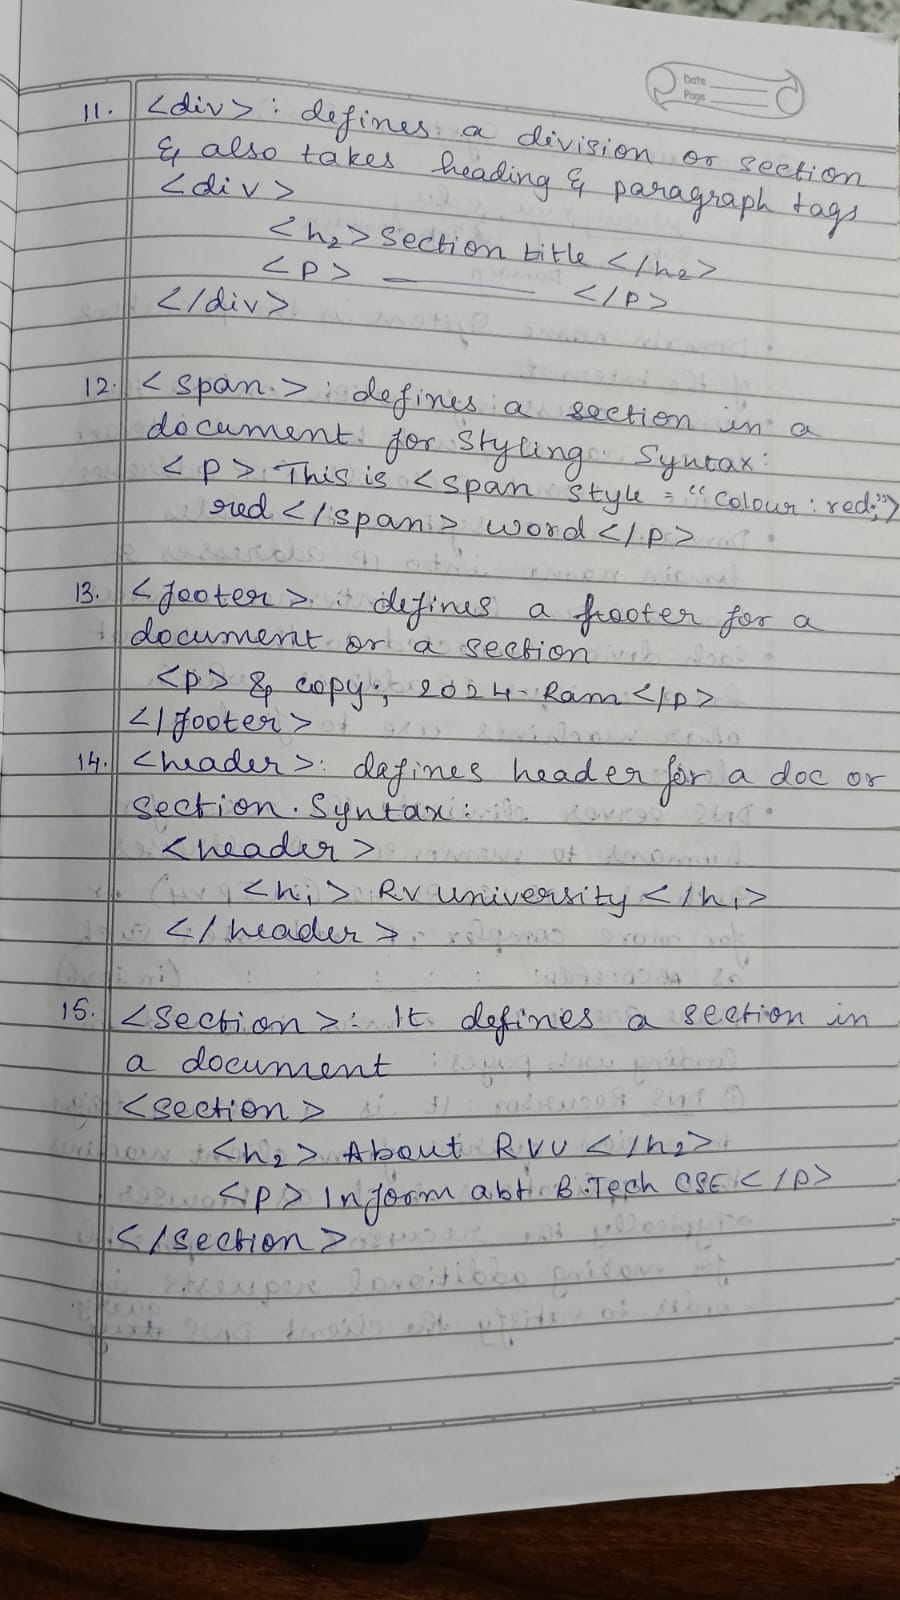 Date
Page
11. <div> : defines a division or section
& also takes heading & paragraph tags
<div>
<h2> Section title </h2>
<p> ______ </p>
</div>
12. <span> : defines a section in a
document for styling. Syntax:
<p> This is <span style = "colour : red;">
red </span> word </p>
13. <footer> : defines a footer for a
document or a section
<p> & copy; 2024 Ram </p>
</footer>
14. <header> : defines header for a doc or
section. Syntax:
<header>
<h1> RV University </h1>
</header>
15. <section> : It defines a section in
a document
<section>
<h2> About RVU </h2>
<p> Inform abt B.Tech CSE </p>
</section>